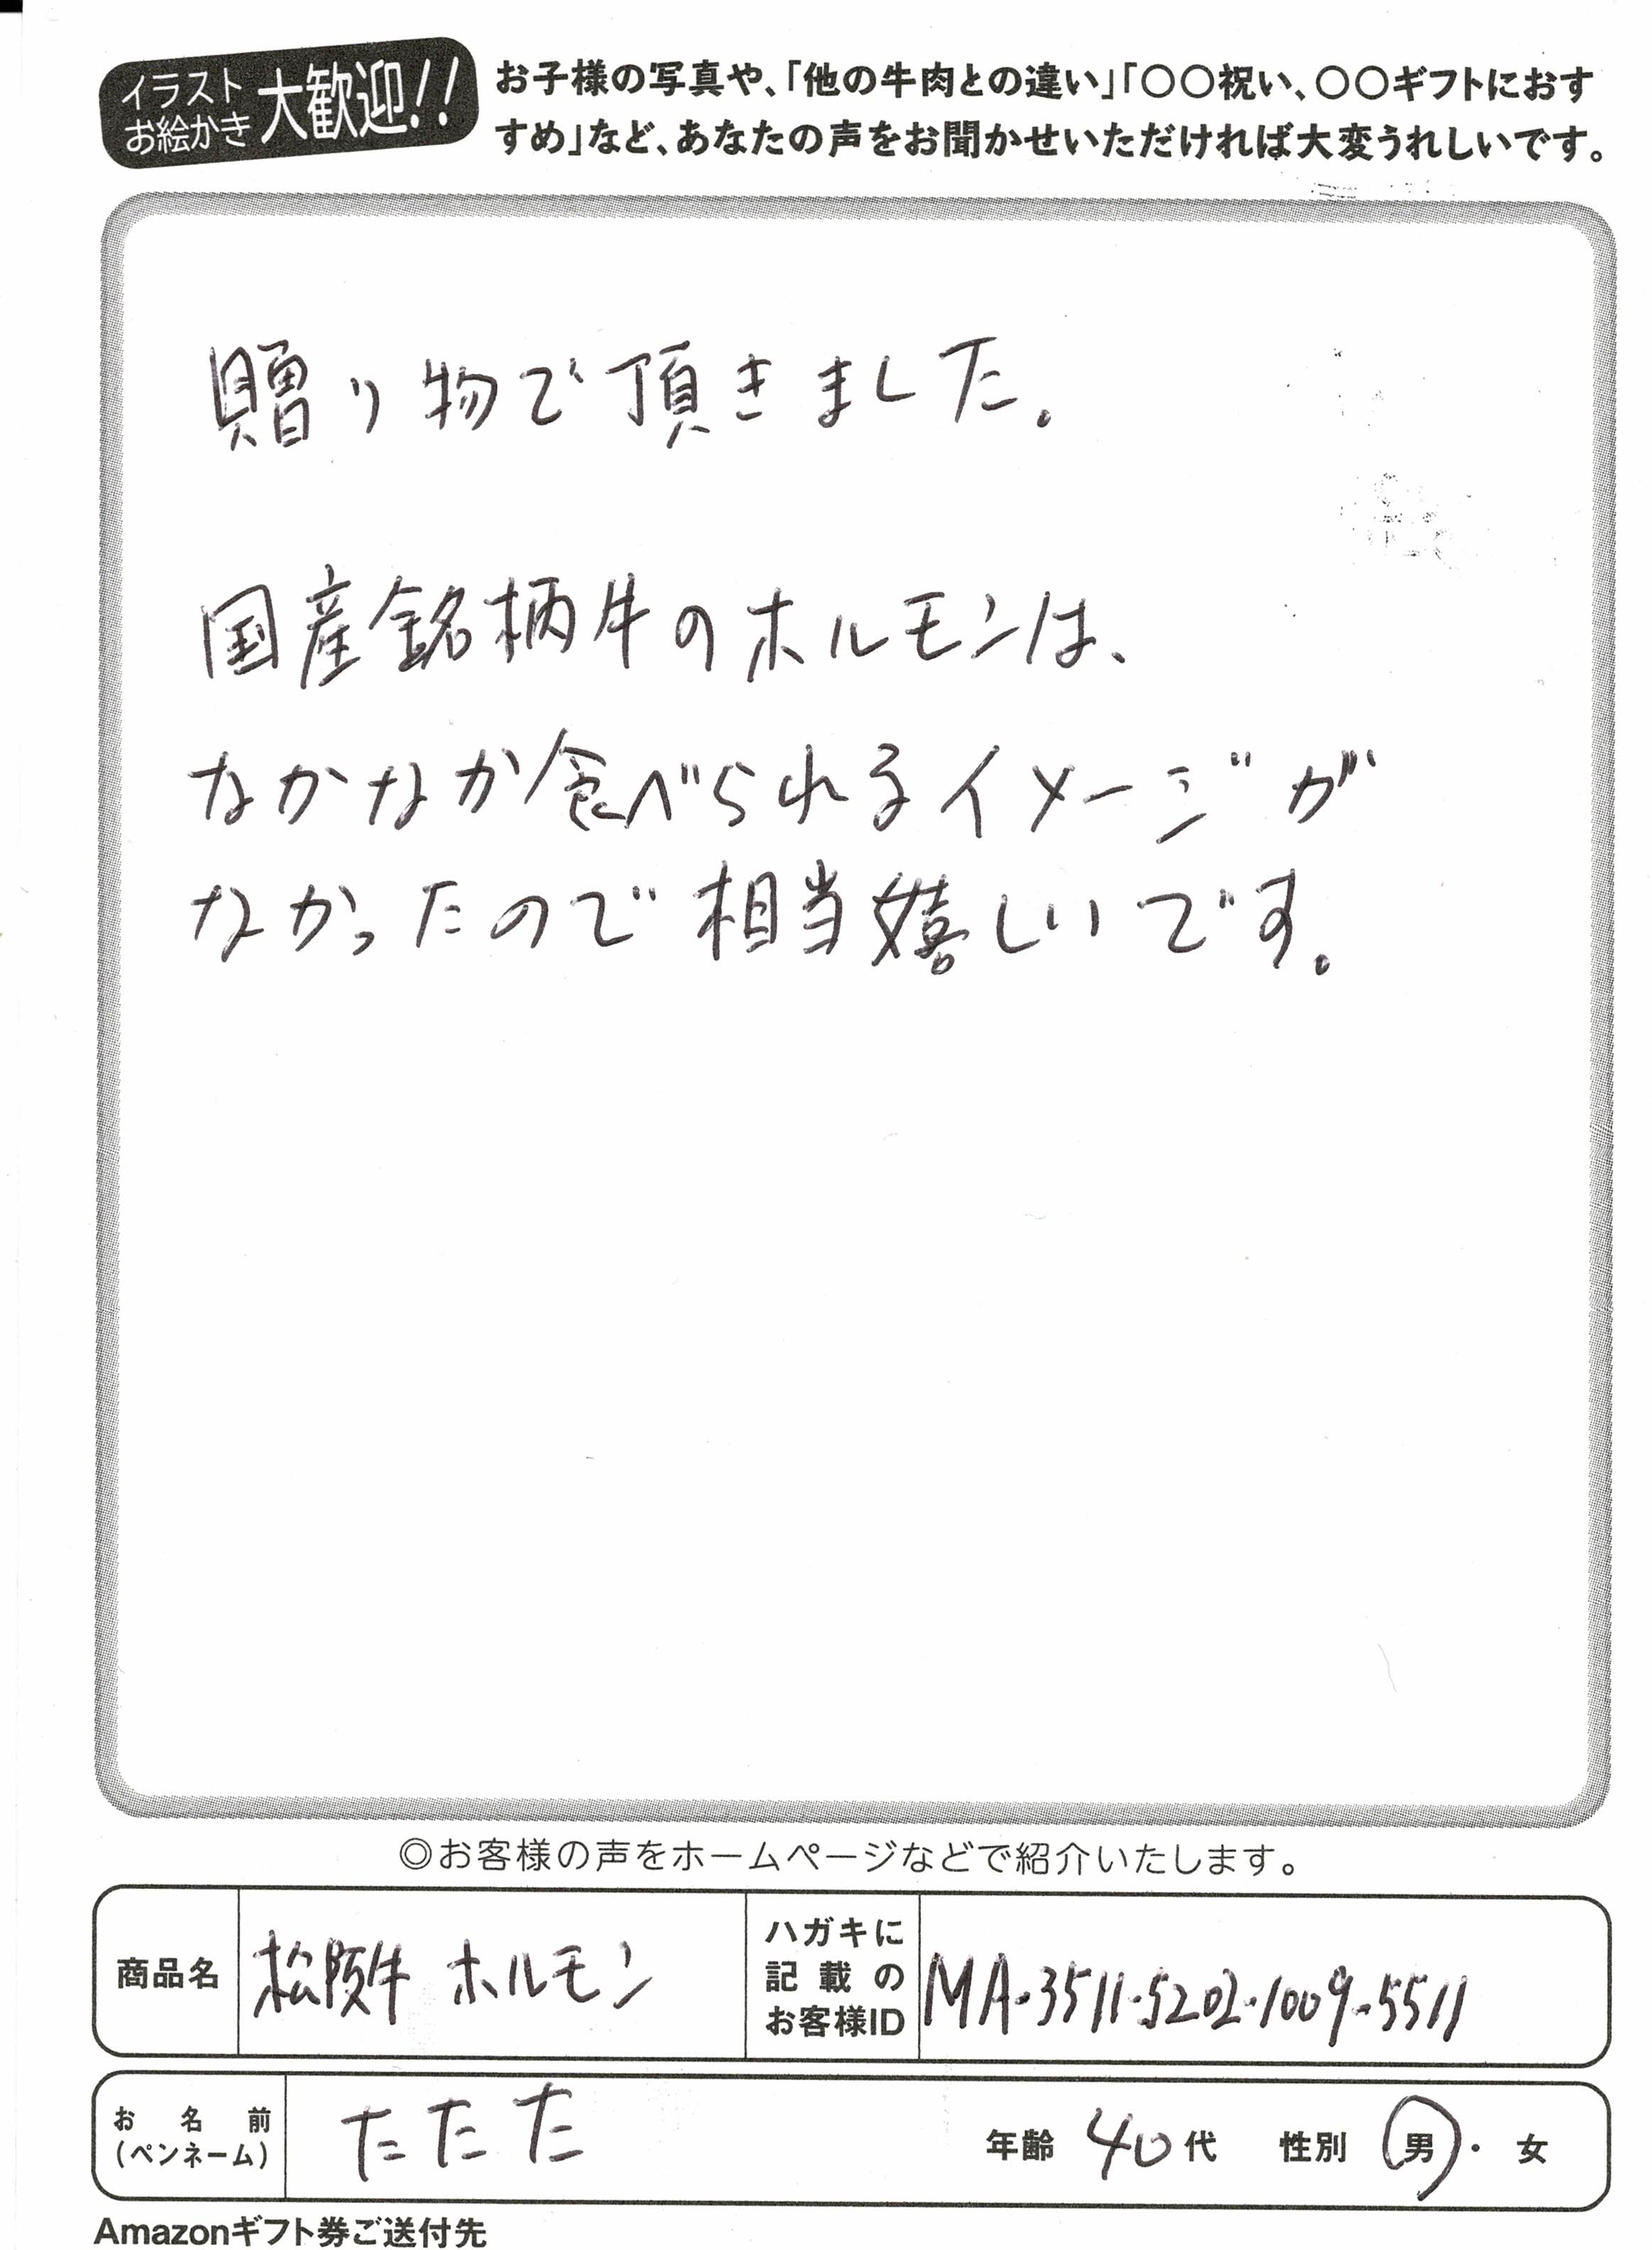 イラスト
お絵かき
大歓迎!!
お子様の写真や、「他の牛肉との違い」「○○祝い、○○ギフトにおす
すめ」など、あなたの声をお聞かせいただければ大変うれしいです。
贈り物で頂きました。
国産銘柄牛のホルモンは、
なかなか食べられるイメージが
なかったので相当嬉しいです。
◎お客様の声をホームページなどで紹介いたします。
商品名
松阪牛 ホルモン
ハガキに
記載の
お客様ID
MA-3511-5202-1009-5511
お名前
(ペンネーム)
たたた
年齢 40代 性別 男・女
Amazonギフト券ご送付先